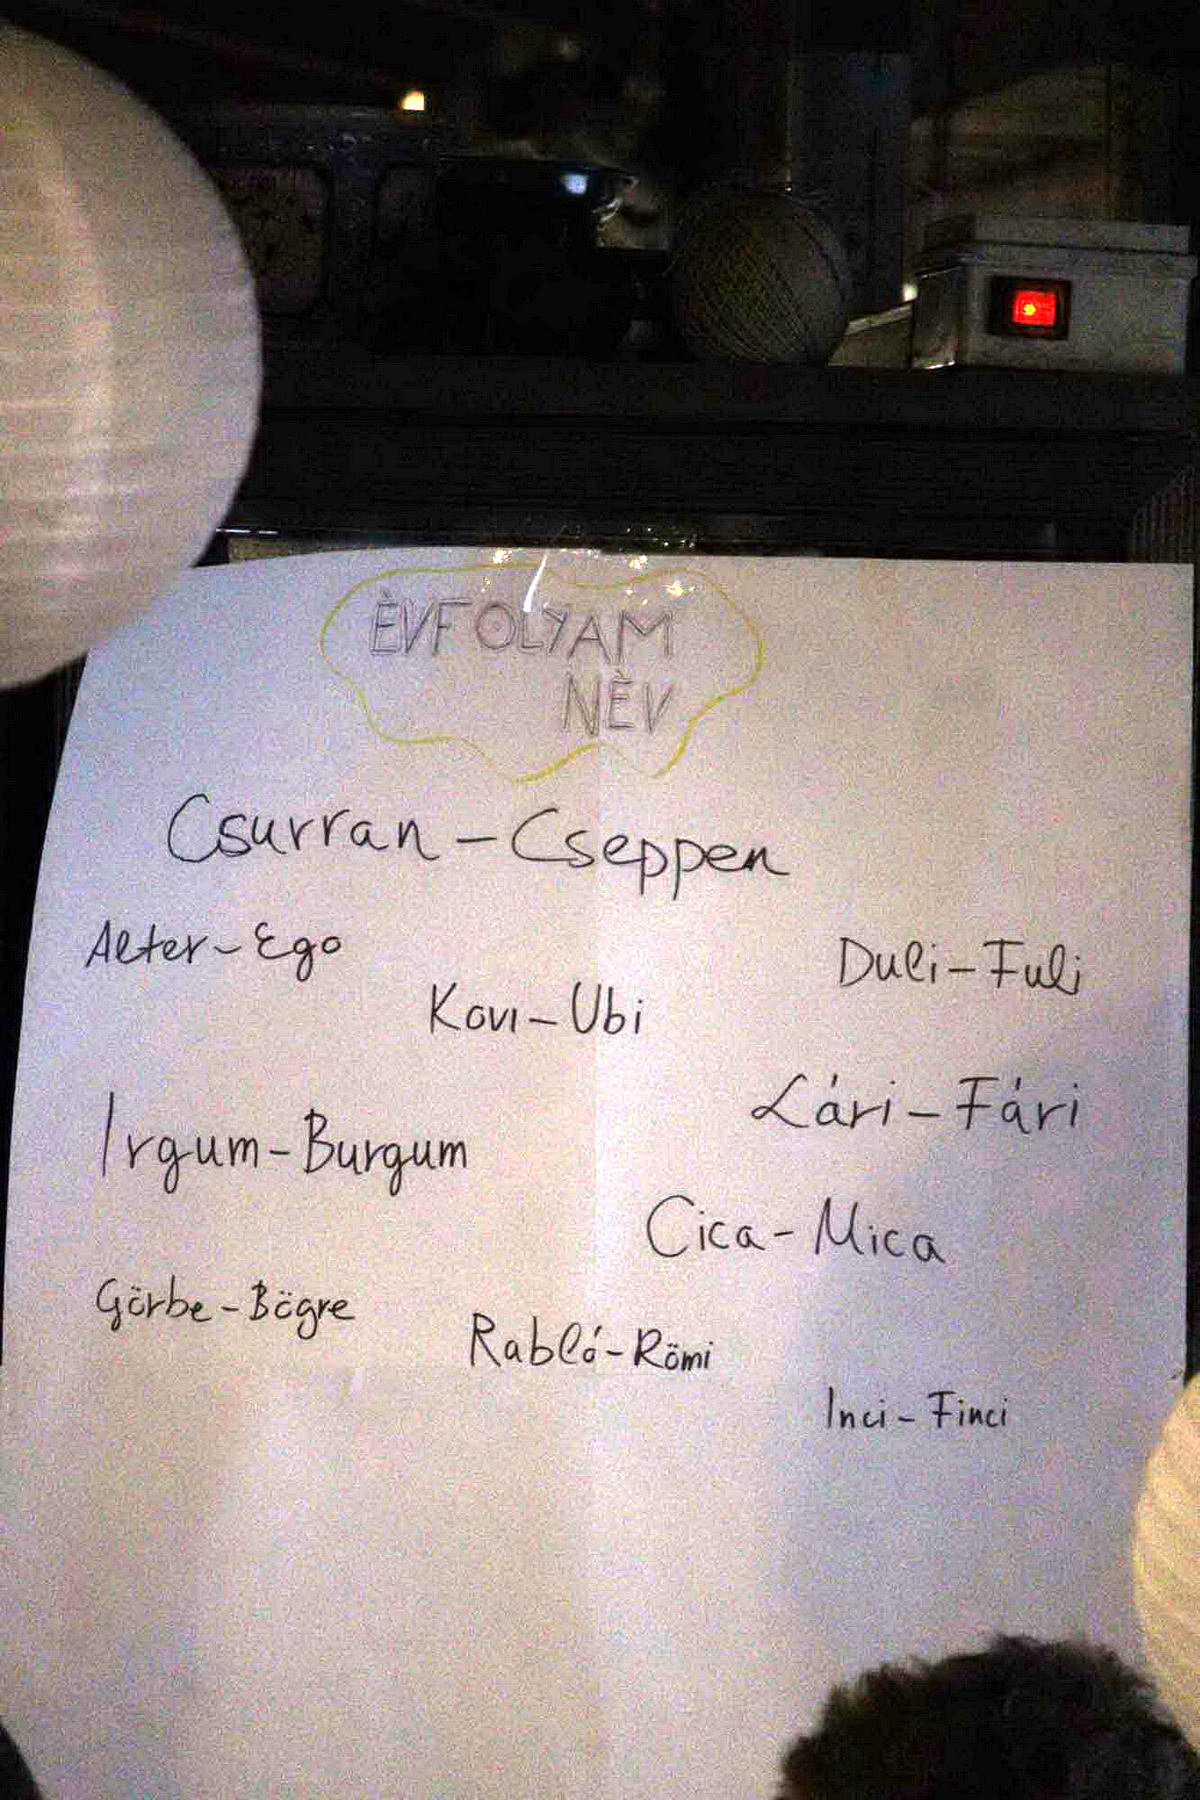 ÈVFOLYAM
NÈV
Csurran-Cseppen
Alter-Ego
Duli-Fuli
Kovi-Ubi
Lári-Fári
Irgum-Burgum
Cica-Mica
Görbe-Bögre
Rabló-Römi
Inci-Finci